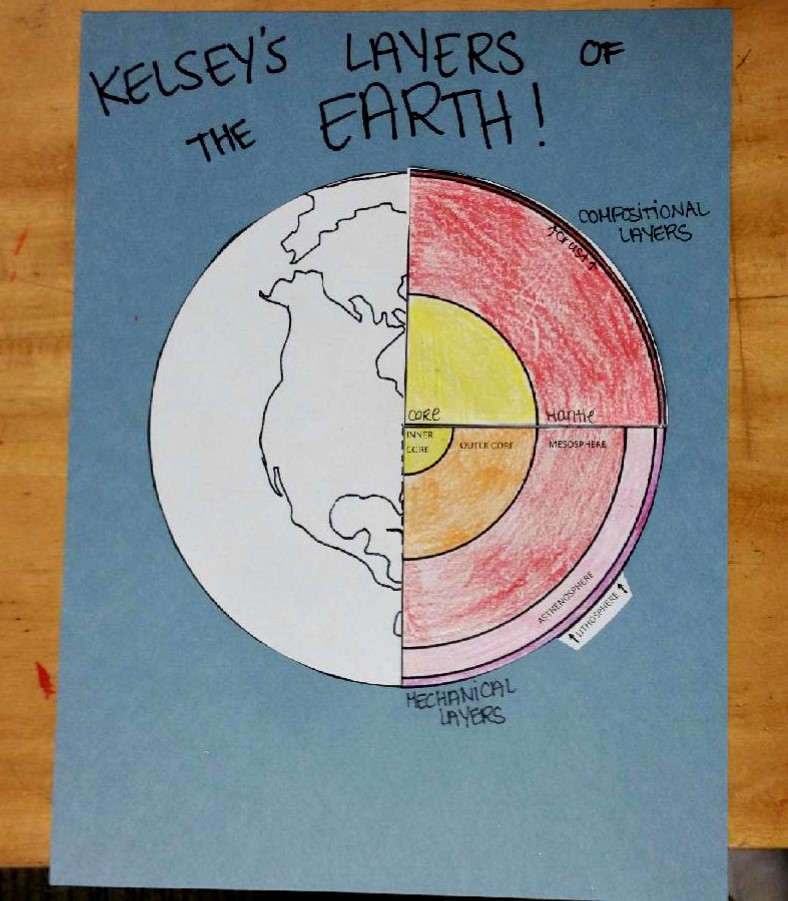 KELSEY'S LAYERS OF
THE EARTH!
COMPOSITIONAL
LAYERS
↑crust↑
core
Mantle
INNER
CORE
OUTER CORE
MESOSPHERE
ASTHENOSPHERE
↑LITHOSPHERE↑
MECHANICAL
LAYERS